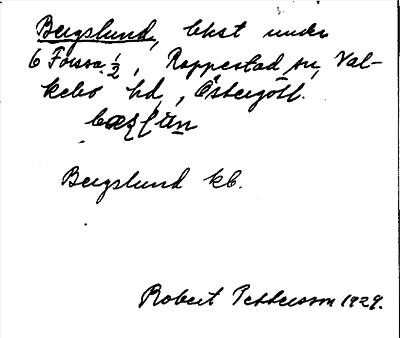 Bergslund, lhst under
6 Forssa 1/2, Rappestad sn, Val-
kebo hd, Östergötl.
Bergslund kb.
Robert Pettersson 1929.